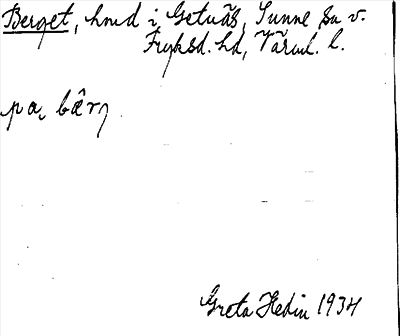 Berget, hmd i Getnäs, Sunne sn v.
Fryksd. hd, Värml. l.
pa, bærj
Greta Hedin 1934